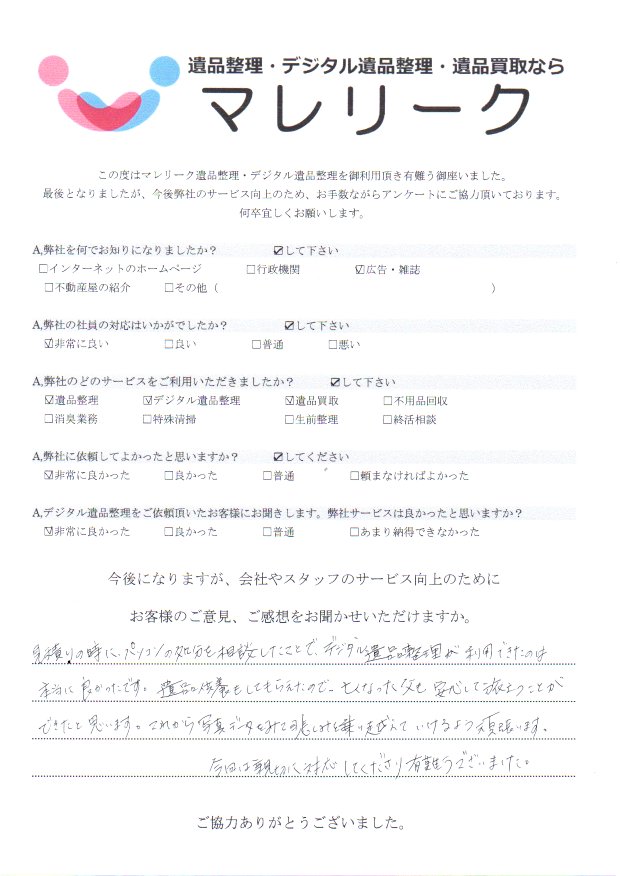 遺品整理・デジタル遺品整理・遺品買取なら
マレリーク
この度はマレリーク遺品整理・デジタル遺品整理を御利用頂き有難う御座いました。
最後となりましたが、今後弊社のサービス向上のため、お手数ながらアンケートにご協力頂いております。
何卒宜しくお願いします。
A,弊社を何でお知りになりましたか? ☑して下さい
□インターネットのホームページ □行政機関 ☑広告・雑誌
□不動産屋の紹介 □その他( )
A,弊社の社員の対応はいかがでしたか? ☑して下さい
☑非常に良い □良い □普通 □悪い
A,弊社のどのサービスをご利用いただきましたか? ☑して下さい
☑遺品整理 ☑デジタル遺品整理 ☑遺品買取 □不用品回収
□消臭業務 □特殊清掃 □生前整理 □終活相談
A,弊社に依頼してよかったと思いますか? ☑してください
☑非常に良かった □良かった □普通 □頼まなければよかった
A,デジタル遺品整理をご依頼頂いたお客様にお聞きします。弊社サービスは良かったと思いますか?
☑非常に良かった □良かった □普通 □あまり納得できなかった
今後になりますが、会社やスタッフのサービス向上のために
お客様のご意見、ご感想をお聞かせいただけますか。
見積りの時に、パソコンの処分を相談したことで、デジタル遺品整理が利用できたのは
本当に良かったです。遺品供養もしてもらえたので、亡くなった父も安心して旅立つことが
できたと思います。これから写真データをみて悲しみを乗り越えていけるよう頑張います。
今回は親切に対応してくださり有難うございました。
ご協力ありがとうございました。